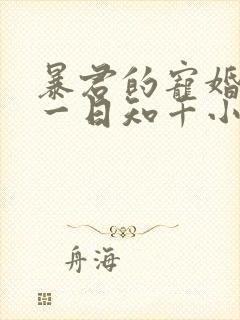 暴君的寵婚
一日知十小
舟海